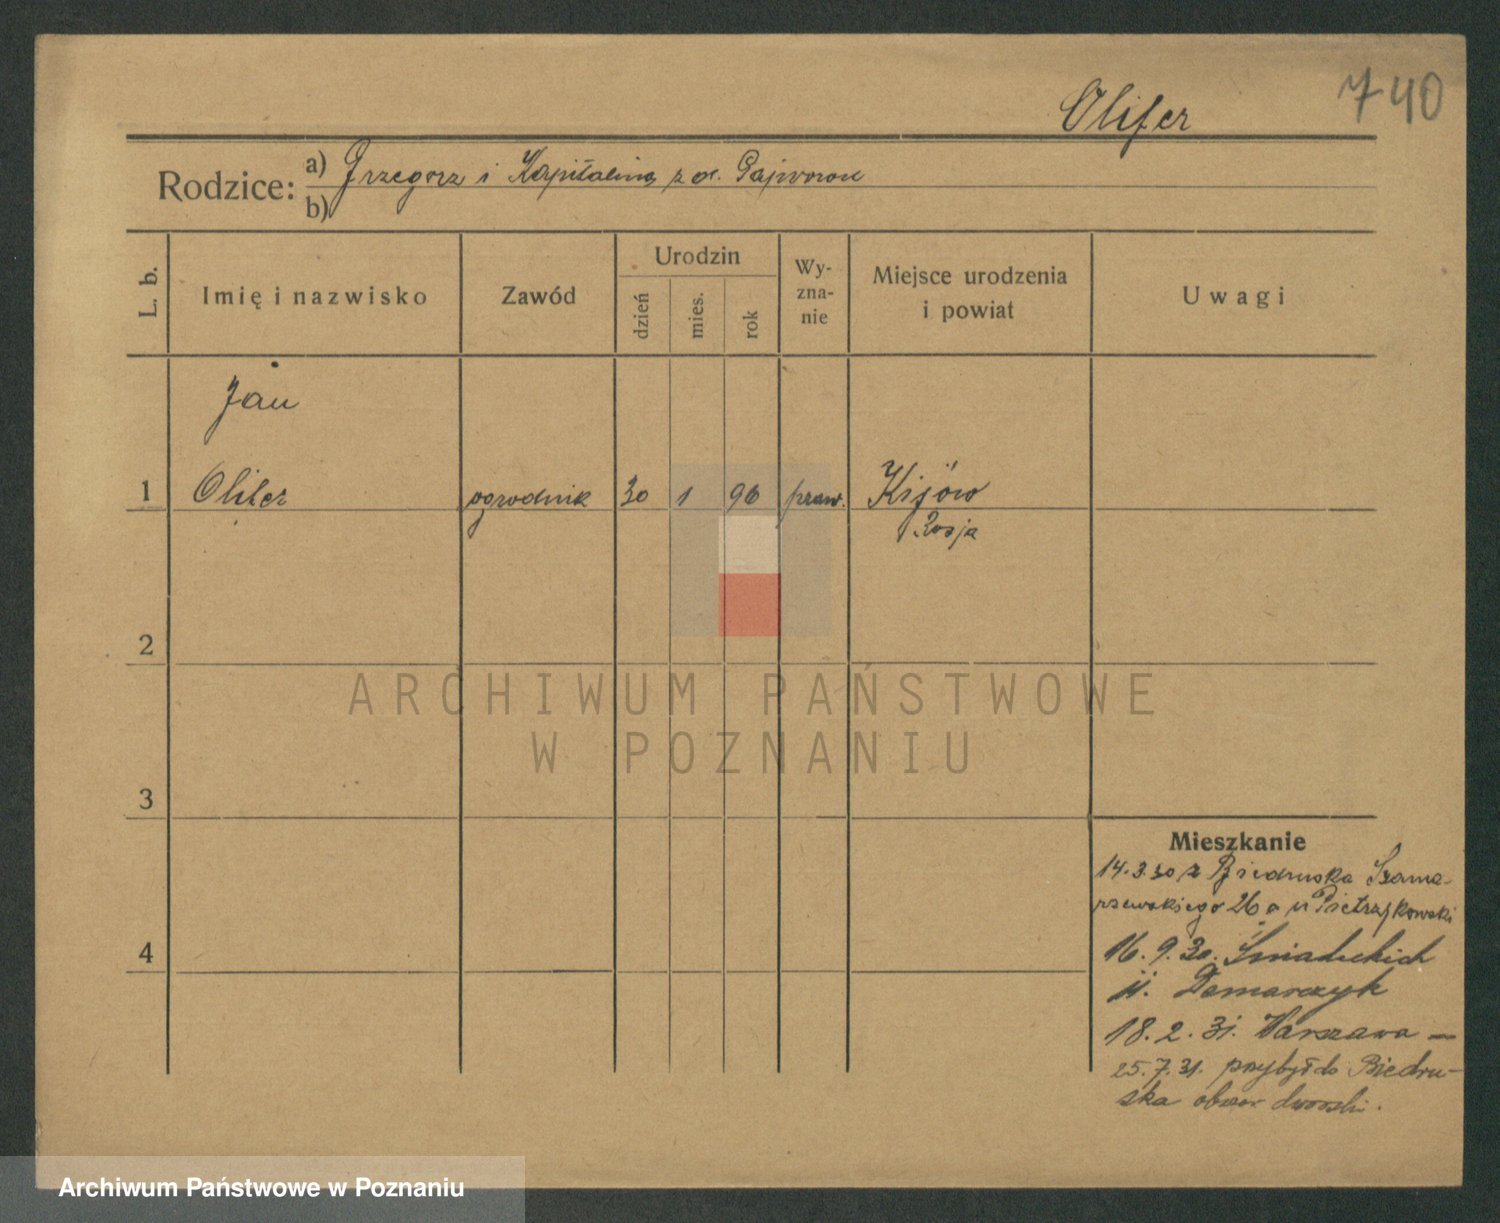 740
Olifer
Rodzice:
a) Grzegorz i Kapitalina z d. Gajworon
b)
L. b.
Imię i nazwisko
Zawód
Urodzin
dzień
mies.
rok
Wy-
zna-
nie
Miejsce urodzenia
i powiat
Uwagi
Jan
1 Olifer ogrodnik 30 1 96 praw. Kijów
Rosja
2
3
4
Mieszkanie
14.3.30 z Biedruska Szama-
rzewskiego 26a u Pietrzykowski
16.9.30. Śniadeckich
11. Demarczyk
18.2.31. Warszawa —
25.7.31. przybył do Biedru-
ska obszar dworski.
ARCHIWUM PAŃSTWOWE
W POZNANIU
Archiwum Państwowe w Poznaniu